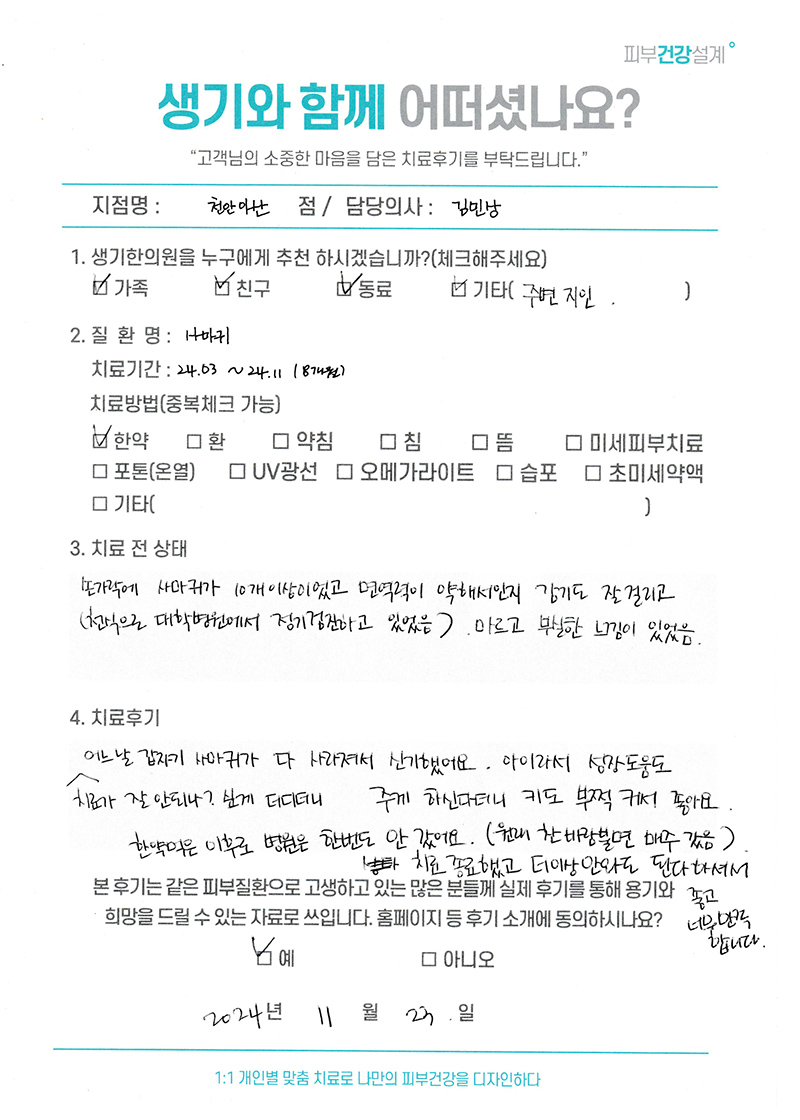 피부건강설계
생기와 함께 어떠셨나요?
“고객님의 소중한 마음을 담은 치료후기를 부탁드립니다.”
지점명 : 천안아산 점 / 담당의사 : 김민상
1. 생기한의원을 누구에게 추천 하시겠습니까?(체크해주세요)
☑ 가족 ☑ 친구 ☑ 동료 ☑ 기타( 주변 지인 . )
2. 질 환 명 : 사마귀
치료기간 : 24.03 ~ 24.11 (8개월)
치료방법(중복체크 가능)
☑ 한약 □ 환 □ 약침 □ 침 □ 뜸 □ 미세피부치료
□ 포톤(온열) □ UV광선 □ 오메가라이트 □ 습포 □ 초미세약액
□ 기타( )
3. 치료 전 상태
손가락에 사마귀가 10개이상이었고 면역력이 약해서인지 감기도 잘걸리고
(천식으로 대학병원에서 정기검진하고 있었음) . 마르고 부실한 느낌이 있었음.
4. 치료후기
어느날 갑자기 사마귀가 다 사라져서 신기했어요. 아이라서 성장도움도
치료가 잘 안되나? 싶게 더디더니 주게 하신다더니 키도 부쩍 커서 좋아요.
한약먹은 이후로 병원은 한번도 안 갔어요. (원래 찬바람불면 매주 갔음)
치료 종료했고 더이상 안와도 된다하셔서
좋고
너무만족
합니다.
본 후기는 같은 피부질환으로 고생하고 있는 많은 분들께 실제 후기를 통해 용기와
희망을 드릴 수 있는 자료로 쓰입니다. 홈페이지 등 후기 소개에 동의하시나요?
☑ 예 □ 아니오
2024년 11 월 23 . 일
1:1 개인별 맞춤 치료로 나만의 피부건강을 디자인하다